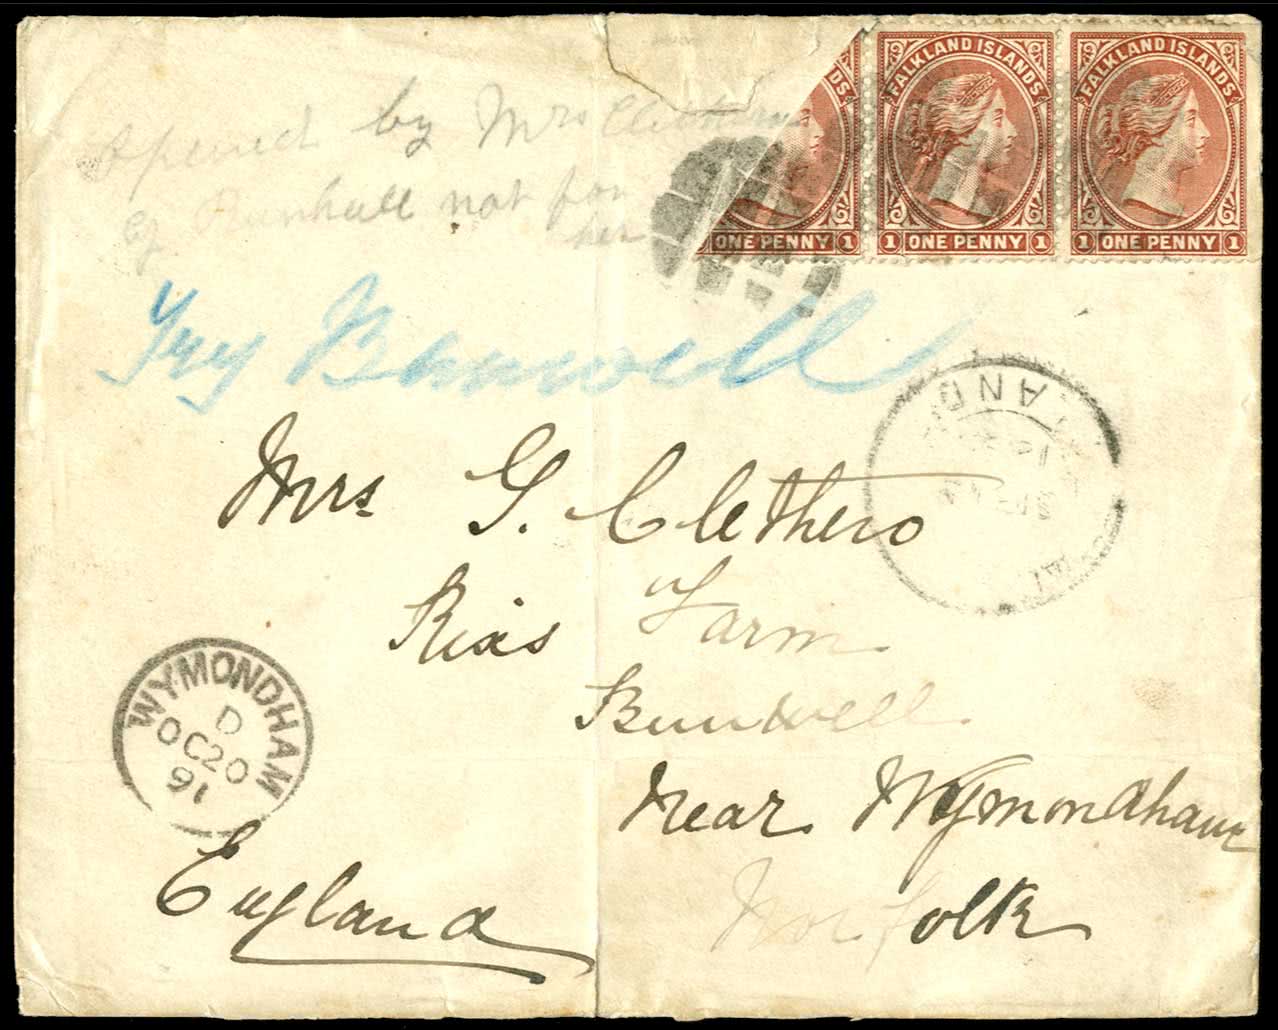 FALKLAND ISLANDS
FALKLAND ISLANDS
ONE PENNY 1
1 ONE PENNY 1
1 ONE PENNY 1
Opened by Mrs Clethero
of Runhall not for
her
Try Bunwell
LAND
Mrs G. Clethero
Rixs Farm
Bunwell
Near Wymondham
Norfolk
England
WYMONDHAM
D
OC 20
91